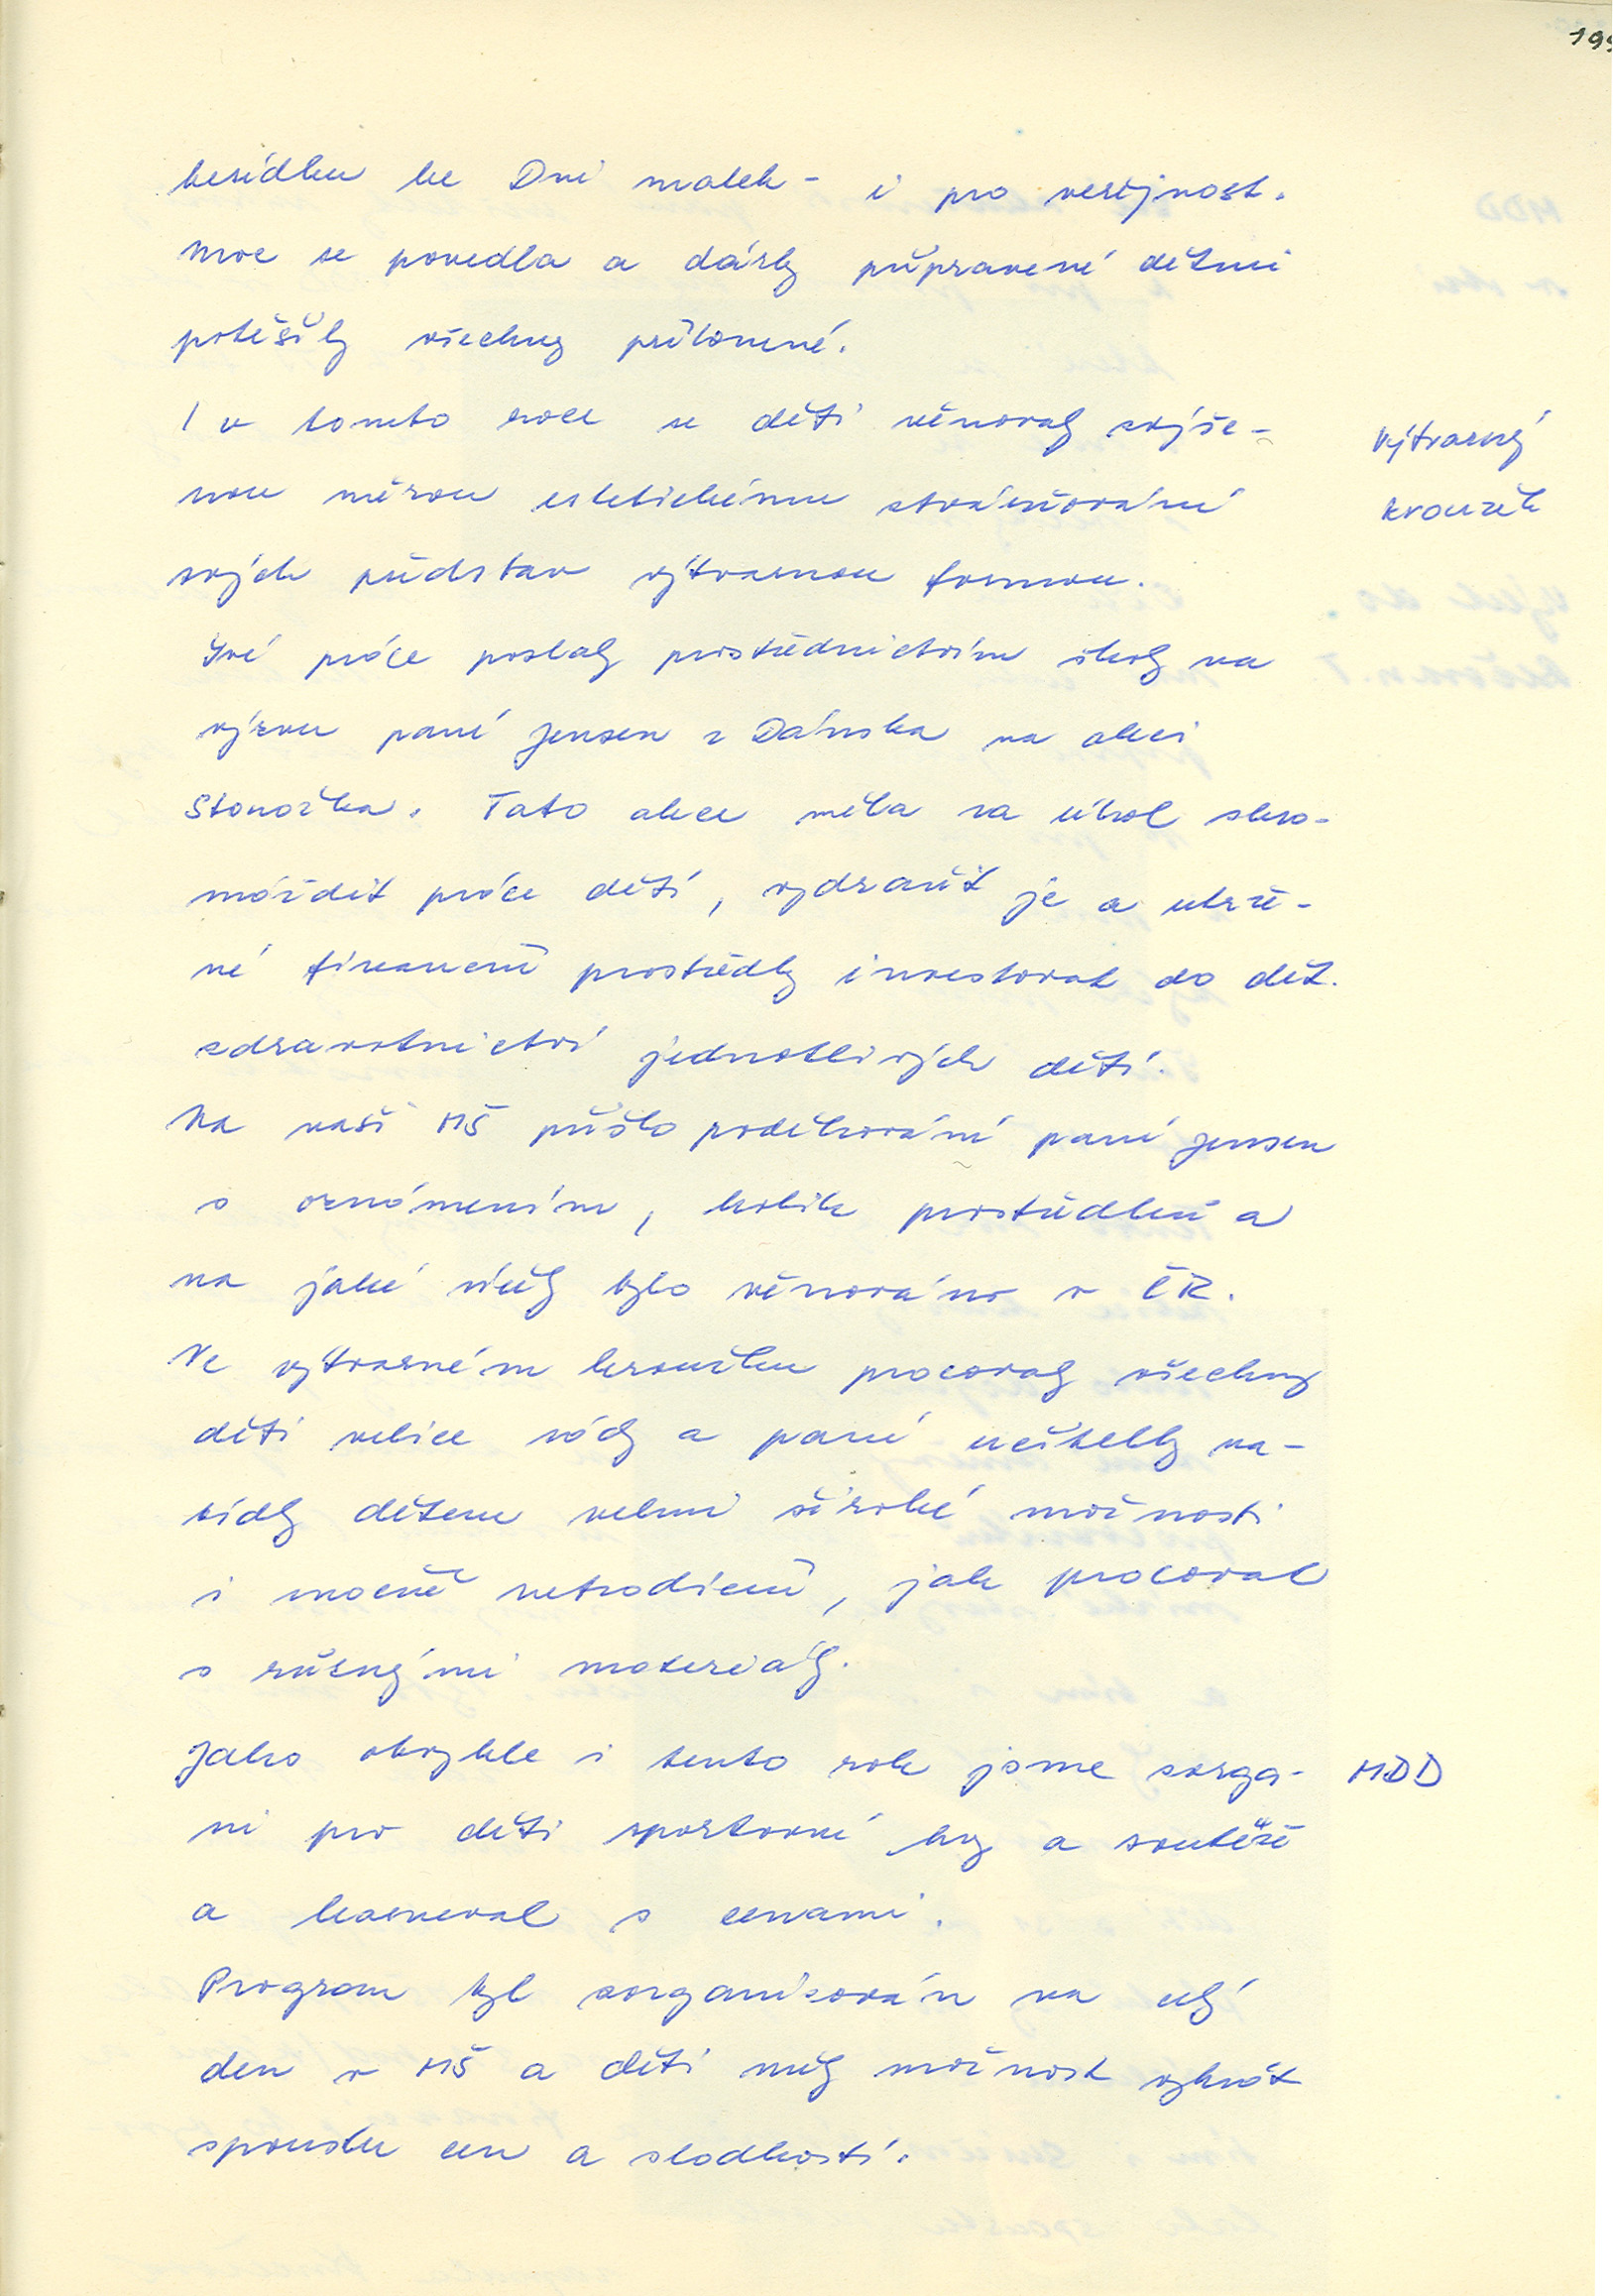 199
besídku ke Dni matek - i pro veřejnost.
Moc se povedla a dárky připravené dětmi
potěšily všechny přítomné.
I v tomto roce se děti věnovaly zvýše-
Výtvarný
nou měrou estetickému ztvárňování
kroužek
svých představ výtvarnou formou.
Své práce poslaly prostřednictvím školy na
výzvu paní Jensen z Dánska na akci
Stonožka. Tato akce měla za úkol shro-
máždit práce dětí, vydražit je a utrže-
né finanční prostředky investovat do dět.
zdravotnictví jednotlivých dětí.
Na naši MŠ přišlo poděkování paní Jensen
s oznámením, kolik prostředků a
na jaké účely bylo věnováno v ČR.
Ve výtvarném kroužku pracovaly všechny
děti velice rády a paní učitelky na-
bídly dětem velmi široké možnosti
i značně netradiční, jak pracovat
s různými materiály.
Jako obvykle i tento rok jsme zorga-
MDD
ni pro děti sportovní hry a soutěže
a karneval s cenami.
Program byl zorganisován na celý
den v MŠ a děti měly možnost vyhrát
spoustu cen a sladkostí.